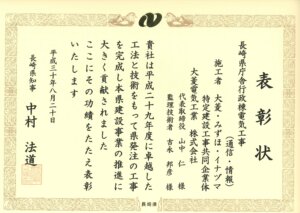 表彰状
長崎県庁舎行政棟電気工事
(通信・情報)
施工者 大菱・みずほ・イナヅマ
特定建設工事共同企業体
大菱電気工業 株式会社
代表取締役 山中 仁 様
監理技術者 吉永 邦彦 様
貴社は平成二十九年度に卓越した
工法と技術をもって県発注の工事
を完成し本県建設事業の推進に
大きく貢献されました
ここにその功績をたたえ表彰
いたします
平成三十年八月二十日
長崎県知事 中村 法道
長崎県